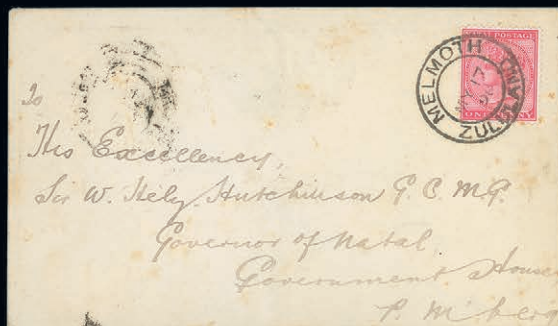 NATAL POSTAGE
MELMOTH
ZULULAND
17
ONE PENNY
To
His Excellency,
Sir W. Hely Hutchinson G.C.M.G.
Governor of Natal
Government House
P. M. berg